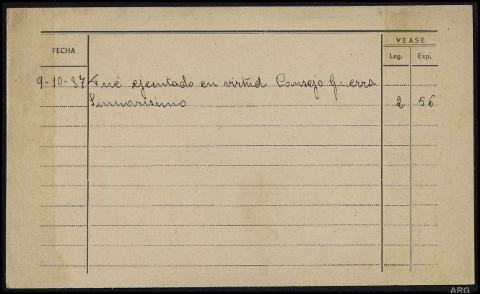 FECHA
VEASE
Leg. Exp.
9-10-37 Fué ejecutado en virtud Consejo Guerra
Sumarísimo 2 56
ARG